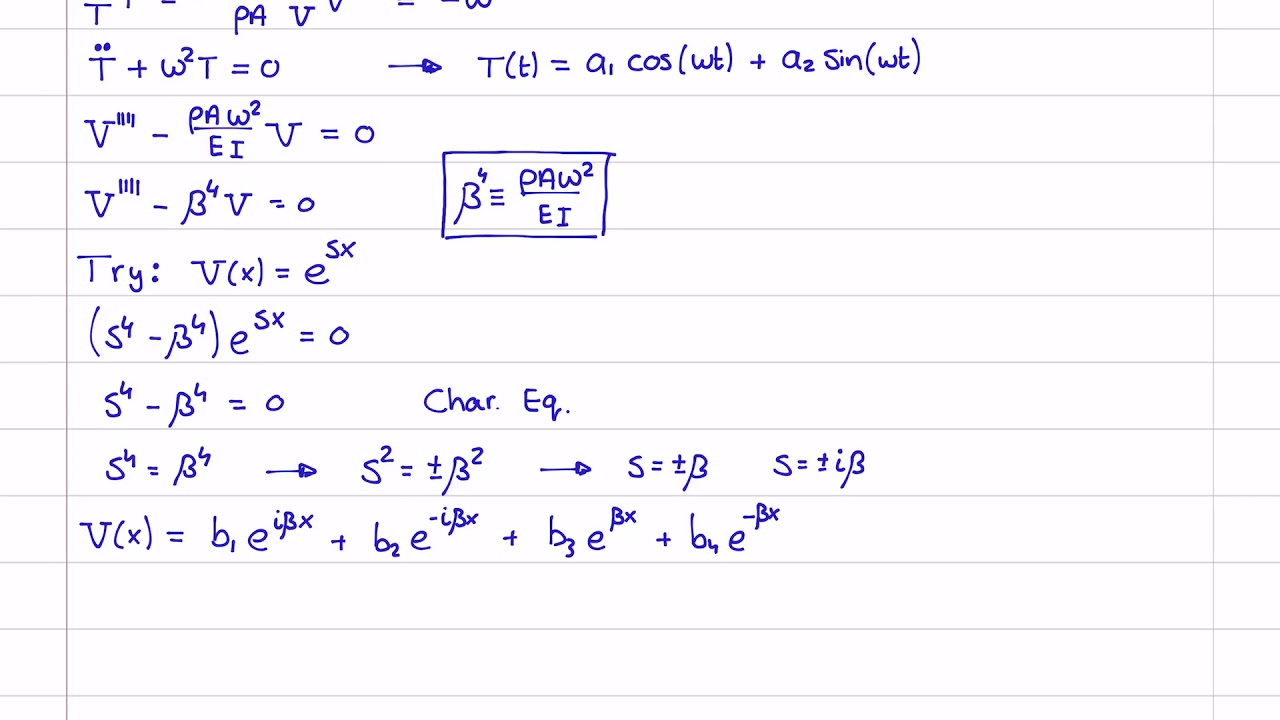 T̈ + ω²T = 0 → T(t) = a₁ cos(ωt) + a₂ sin(ωt)
V'''' − ρAω²/EI V = 0
V'''' − β⁴V = 0 β⁴ ≡ ρAω²/EI
Try: V(x) = e^sx
(s⁴ − β⁴) e^sx = 0
s⁴ − β⁴ = 0 Char. Eq.
s⁴ = β⁴ → s² = ±β² → s = ±β s = ±iβ
V(x) = b₁ e^iβx + b₂ e^-iβx + b₃ e^βx + b₄ e^-βx